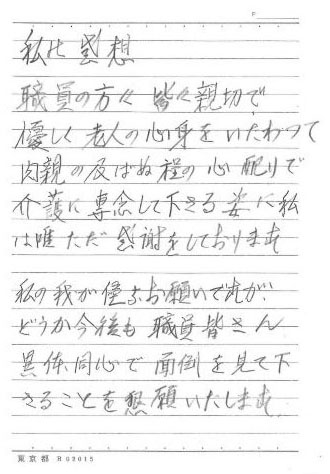 P.
私の感想
職員の方々 皆々親切で
優しく老人の心身をいたわって
肉親の及ばぬ程の心配りで
介護に専念して下さる姿に私
は唯ただ感謝をしております
私の我が侭なお願いですれが、
どうか今後も職員皆さん
異体同心で面倒を見て下
さることを懇願いたします。
東京都 B02015